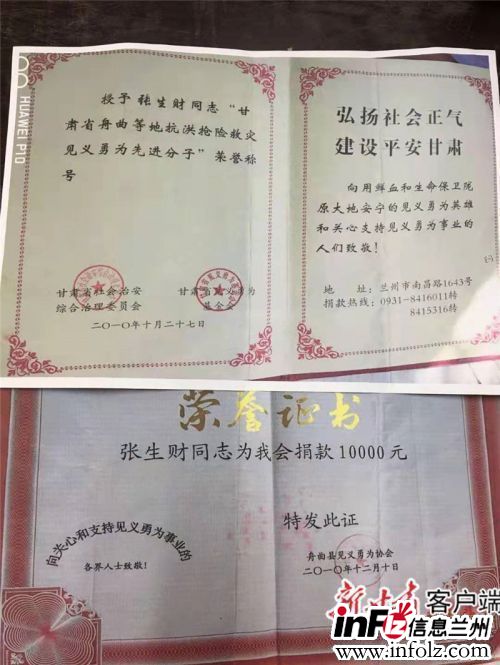 HUAWEI P10
授予张生财同志“甘
肃省舟曲等地抗洪抢险救灾
见义勇为先进分子”荣誉称
号
甘肃省社会治安
综合治理委员会
甘肃省见义勇为
基金会
二〇一〇年十月二十七日
弘扬社会正气
建设平安甘肃
向用鲜血和生命保卫陇
原大地安宁的见义勇为英雄
和关心支持见义勇为事业的
人们致敬!
地 址:兰州市南昌路1643号
捐款热线:0931-8416011转
8415316转
荣誉证书
张生财同志为我会捐款10000元
特发此证
向关心和支持见义勇为事业的
各界人士致敬!
舟曲县见义勇为协会
二〇一〇年十二月十日
新甘肃客户端
infolz信息兰州
www.infolz.com